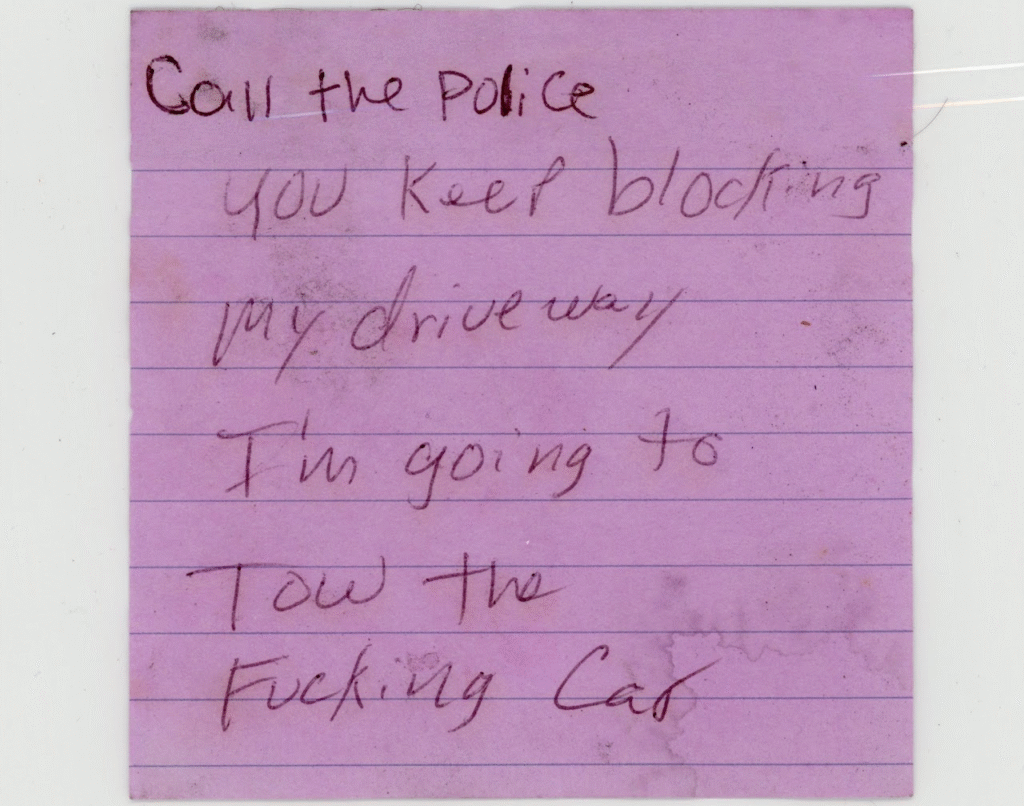 Call the police
you keep blocking
my driveway
I'm going to
Tow the
Fucking Car